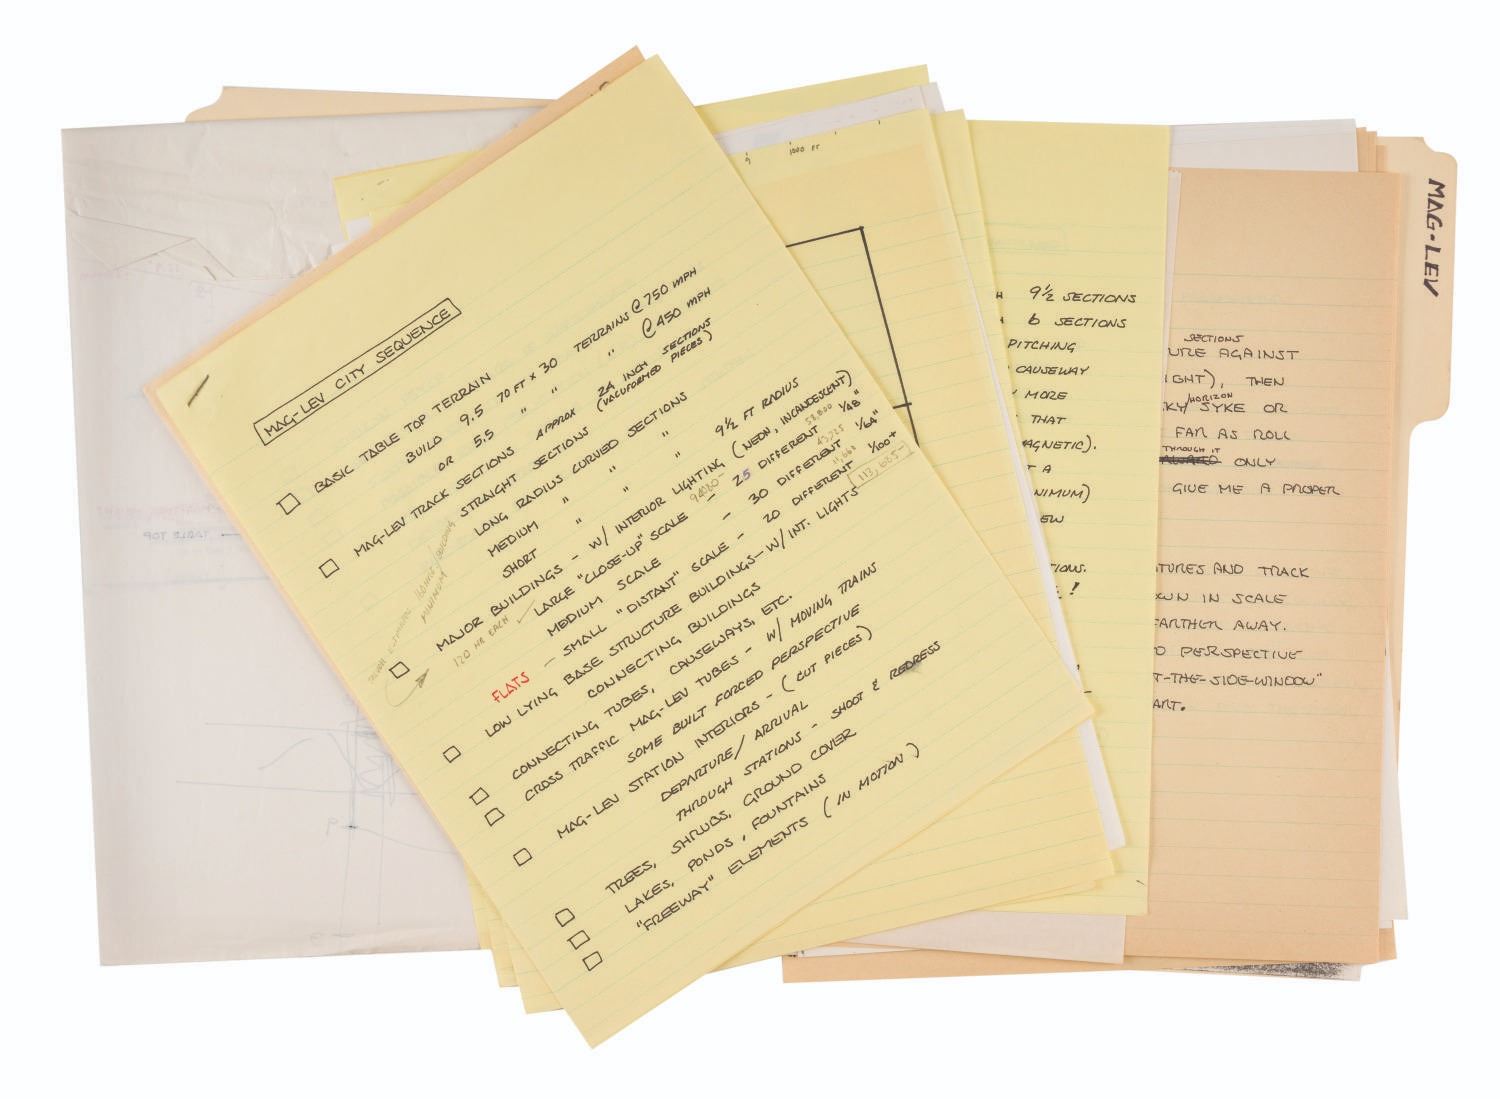 MAG-LEV CITY SEQUENCE
BASIC TABLE TOP TERRAIN
BUILD 9.5 70 FT X 30 TERRAINS @ 750 MPH
OR 5.5 " " " @ 450 MPH
MAG-LEV TRACK SECTIONS APPROX 24 INCH SECTIONS
STRAIGHT SECTIONS (VACUFORMED PIECES)
LONG RADIUS CURVED SECTIONS
MEDIUM " " "
SHORT " " " 9½ FT RADIUS
MAJOR BUILDINGS - W/ INTERIOR LIGHTING (NEON, INCANDESCENT)
120 HR EACH
MINIMUM
LARGE "CLOSE-UP" SCALE - 25 DIFFERENT 1/48"
MEDIUM SCALE - 30 DIFFERENT 1/64"
FLATS - SMALL "DISTANT" SCALE - 20 DIFFERENT 1/100+
113,685-
LOW LYING BASE STRUCTURE BUILDINGS - W/ INT. LIGHTS
CONNECTING BUILDINGS
CONNECTING TUBES, CAUSEWAYS, ETC.
CROSS TRAFFIC MAG-LEV TUBES - W/ MOVING TRAINS
SOME BUILT FORCED PERSPECTIVE
MAG-LEV STATION INTERIORS - (CUT PIECES)
DEPARTURE/ARRIVAL
THROUGH STATIONS - SHOOT & REDRESS
TREES, SHRUBS, GROUND COVER
LAKES, PONDS, FOUNTAINS
"FREEWAY" ELEMENTS (IN MOTION)
9
1000 FT
9½ SECTIONS
6 SECTIONS
PITCHING
CAUSEWAY
MORE
THAT
AGNETIC).
T A
NIMUM)
EW
TIONS.
!
SECTIONS
URE AGAINST
IGHT), THEN
HORIZON
KY/SYKE OR
FAR AS ROLL
THROUGH IT
ONLY
GIVE ME A PROPER
TURES AND TRACK
OWN IN SCALE
FARTHER AWAY.
D PERSPECTIVE
T-THE-SIDE-WINDOW"
ART.
MAG-LEV
TABLE TOP